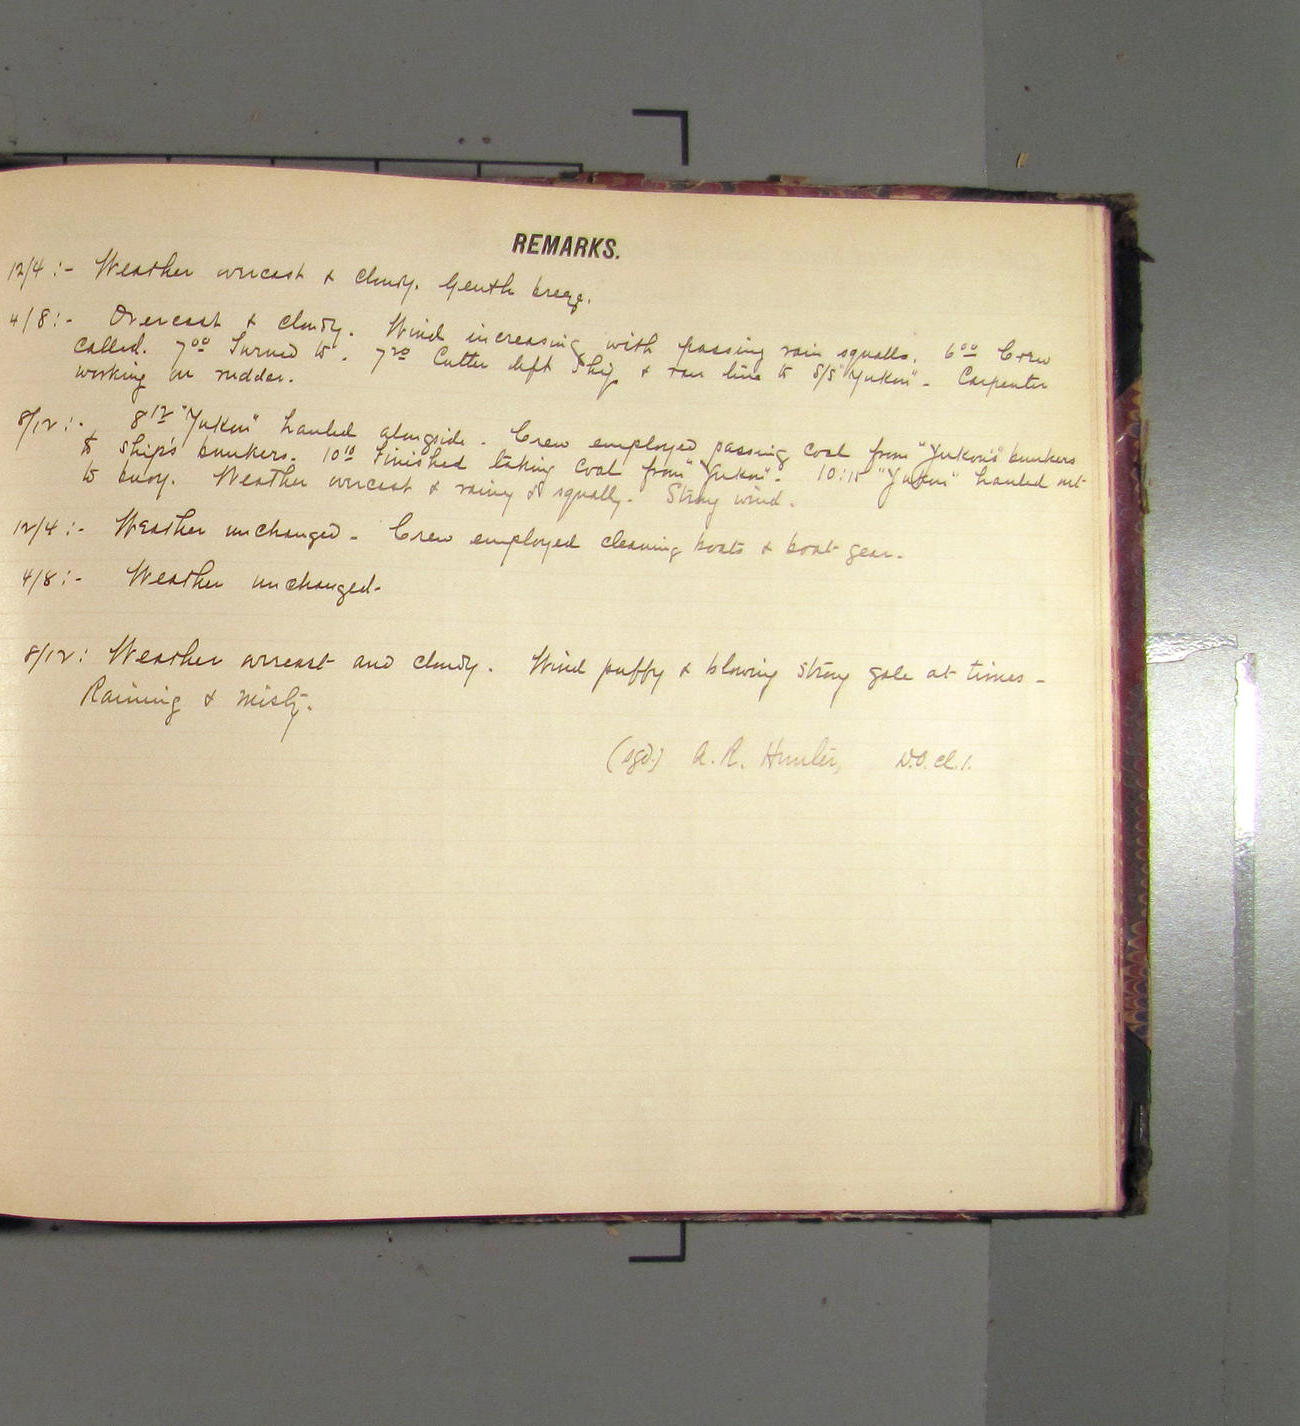 REMARKS.
12/4 :- Weather overcast & cloudy. Gentle breeze.
4/8 :- Overcast & cloudy. Wind increasing with passing rain squalls. 6⁰⁰ Crew
called. 7⁰⁰ Turned to. 7²⁰ Cutter left ship & ran line to S/S "Yukon" - Carpenter
working on rudder.
8/12 :- 8¹² "Yukon" hauled alongside - Crew employed passing coal from "Yukon's" bunkers
to ship's bunkers. 10¹⁰ Finished taking coal from "Yukon". 10:15 "Yukon" hauled out
to buoy. Weather overcast & rainy & squally. Strong wind.
12/4 :- Weather unchanged - Crew employed cleaning boats & boat gear.
4/8 :- Weather unchanged -
8/12 : Weather overcast and cloudy. Wind puffy & blowing strong gale at times -
Raining & misty.
(sgd.) A. R. Hunter,